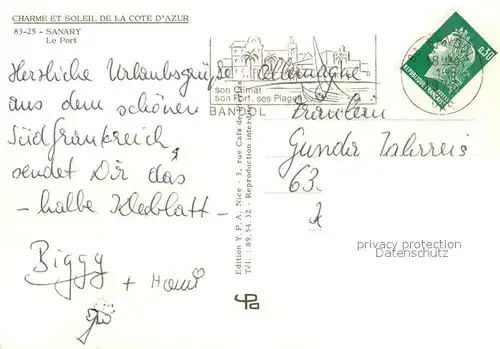 CHARME ET SOLEIL DE LA COTE D'AZUR
83-25 - SANARY
Le Port
Herzliche Urlaubsgrüße
aus dem schönen
Südfrankreich,
sendet Dir das
- halbe Kleeblatt -
Biggy
+
son Climat
son Port, ses Plages
BANDOL
0,30
REPUBLIQUE FRANÇAISE
Allemagne
Fräulein
Gunda
63.
Edition Y. P. A. Nice - 3, rue Cais de
Tél : 89.54.32 - Reproduction interdite
privacy protection
Datenschutz